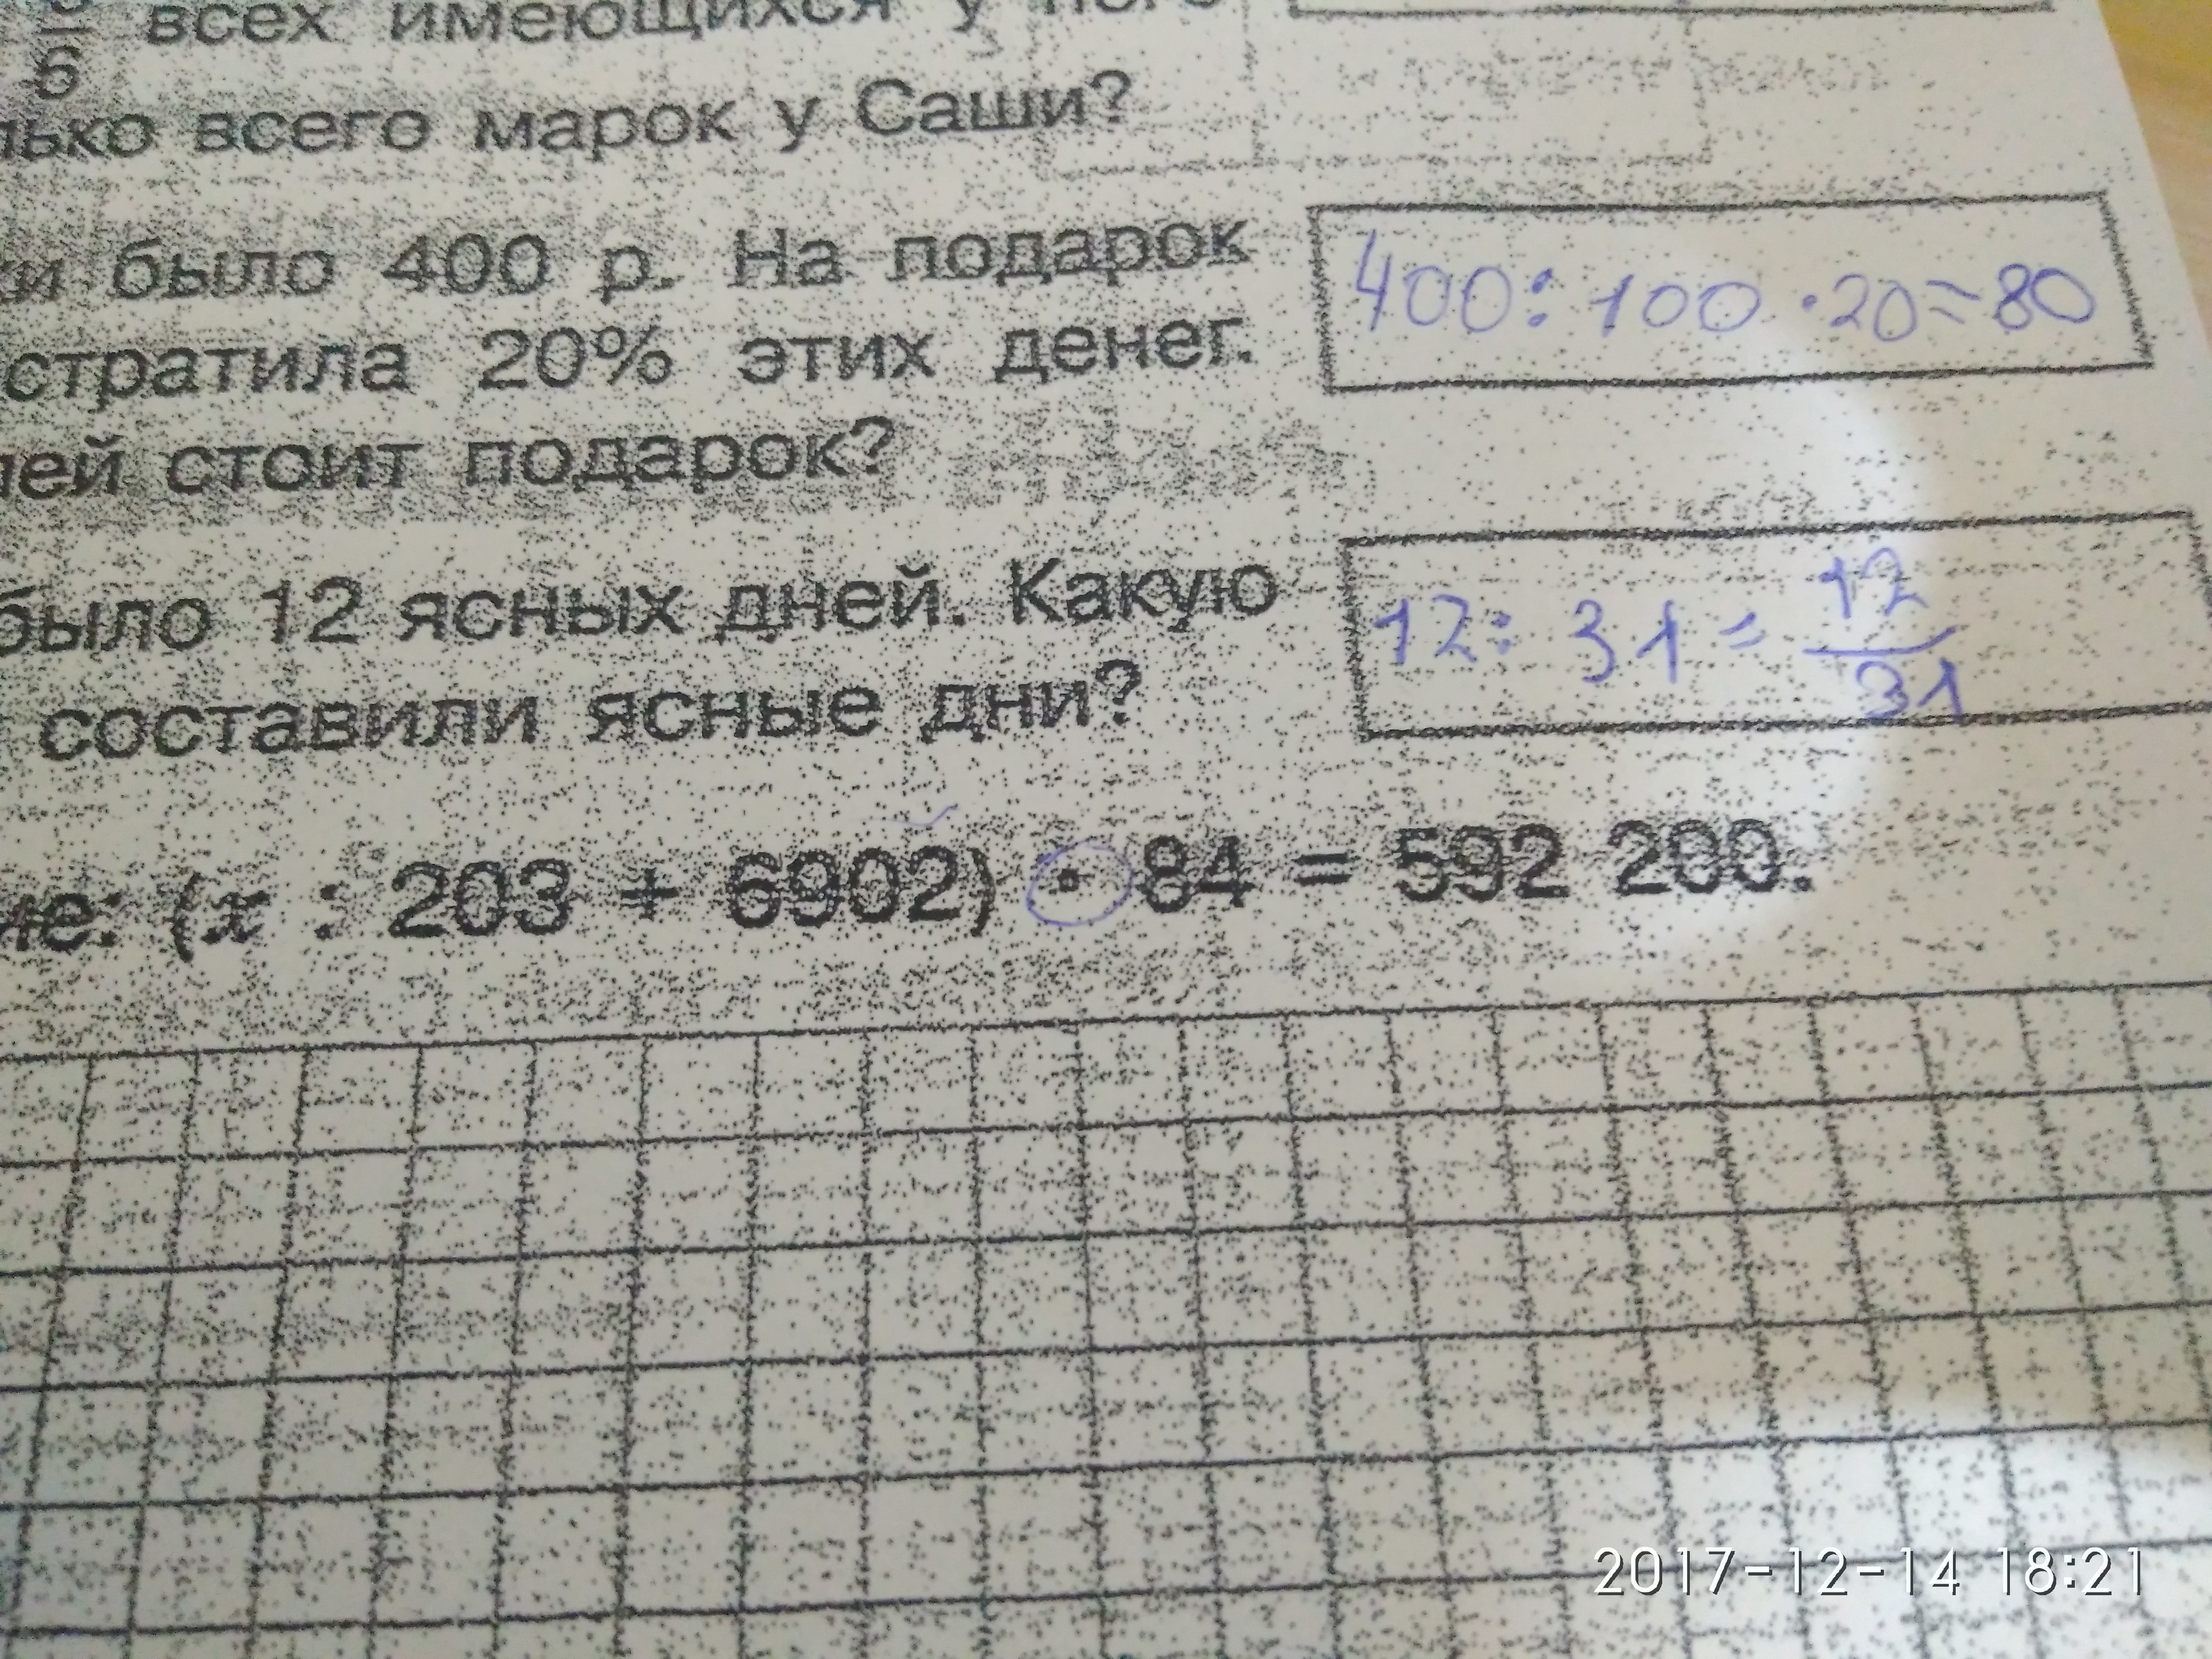 6 всех имеющихся у
всего марок у Саши?
было 400 р. На подарок
стратила 20% этих денег.
стоит подарок?
400 : 100 · 20 = 80
было 12 ясных дней. Какую
составили ясные дни?
12 : 31 = 12/31
(x : 203 + 6902) · 84 = 592 200.
2017-12-14 18:21